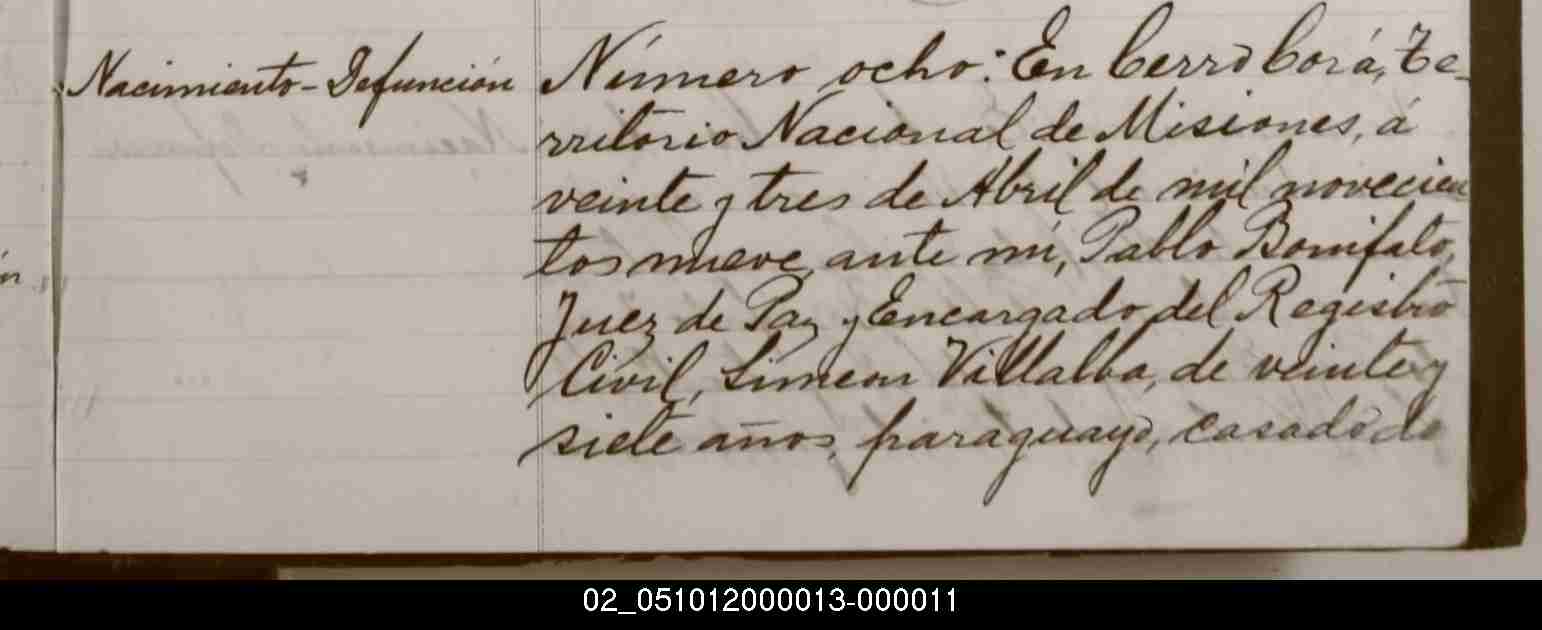 Nacimiento-Defunción
Número ocho: En Cerro Corá, Te-
rritorio Nacional de Misiones, á
veinte y tres de Abril de mil novecien
tos nueve, ante mí, Pablo Bonifato,
Juez de Paz y Encargado del Registro
Civil, Simeon Villalba, de veinte y
siete años, paraguayo, casado, do
02_051012000013-000011